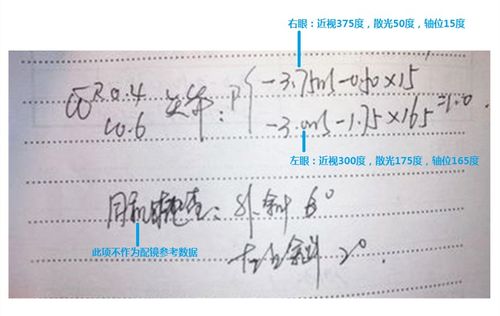 右眼：近视375度，散光50度，轴位15度
R 0.4
L 0.6
-3.75 -0.50×15
-3.0 -1.75×165 =1.0
左眼：近视300度，散光175度，轴位165度
同机检查：外斜 6°
此项不作为配镜参考数据
左上斜 2°.